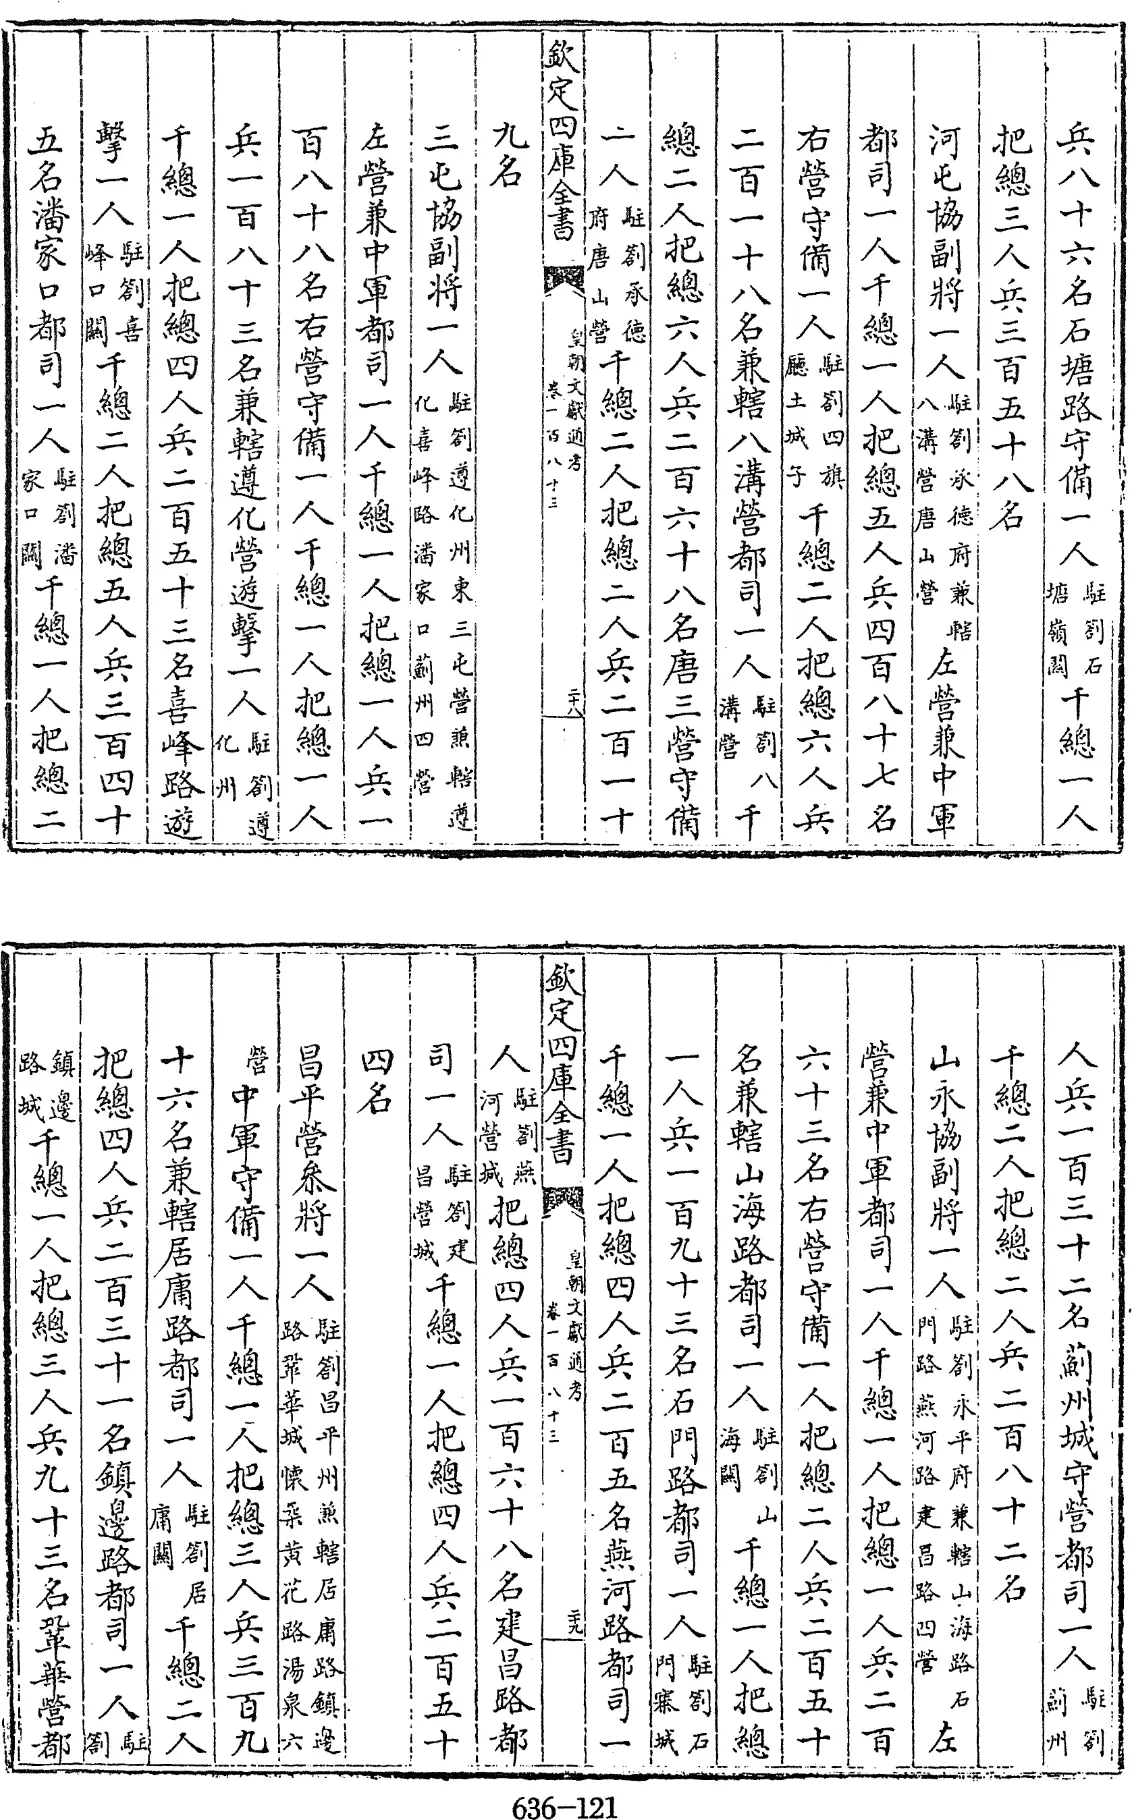 兵八十六名石塘路守備一人駐劄石塘嶺關千總一人
把總三人兵三百五十八名
河屯協副將一人駐劄承德府兼轄八溝營唐山營左營兼中軍
都司一人千總一人把總五人兵四百八十七名
右營守備一人駐劄四旗廳土城子千總二人把總六人兵
二百一十八名兼轄八溝營都司一人駐劄八溝營千
總二人把總六人兵二百六十八名唐三營守備
一人駐劄承德府唐山營千總二人把總二人兵二百一十
欽定四庫全書
皇朝文獻通考
卷一百八十三
二十八
九名
三屯協副將一人駐劄遵化州東三屯營兼轄遵化喜峰路潘家口薊州四營
左營兼中軍都司一人千總一人把總一人兵一
百八十八名右營守備一人千總一人把總一人
兵一百八十三名兼轄遵化營遊擊一人駐劄遵化州
千總一人把總四人兵二百五十三名喜峰路遊
擊一人駐劄喜峰口關千總二人把總五人兵三百四十
五名潘家口都司一人駐劄潘家口關千總一人把總二
人兵一百三十二名薊州城守營都司一人駐劄薊州
千總二人把總二人兵二百八十二名
山永協副將一人駐劄永平府兼轄山海路石門路燕河路建昌路四營左
營兼中軍都司一人千總一人把總一人兵二百
六十三名右營守備一人把總二人兵二百五十
名兼轄山海路都司一人駐劄山海關千總一人把總
一人兵一百九十三名石門路都司一人駐劄石門寨城
千總一人把總四人兵二百五名燕河路都司一
欽定四庫全書
皇朝文獻通考
卷一百八十三
二十九
人駐劄燕河營城把總四人兵一百六十八名建昌路都
司一人駐劄建昌營城千總一人把總四人兵二百五十
四名
昌平營參將一人駐劄昌平州兼轄居庸路鎮邊路鞏華城懷柔黃花路湯泉六
營中軍守備一人千總一人把總三人兵三百九
十六名兼轄居庸路都司一人駐劄居庸關千總二人
把總四人兵二百三十一名鎮邊路都司一人駐劄
鎮邊路城千總一人把總三人兵九十三名鞏華營都
636-121